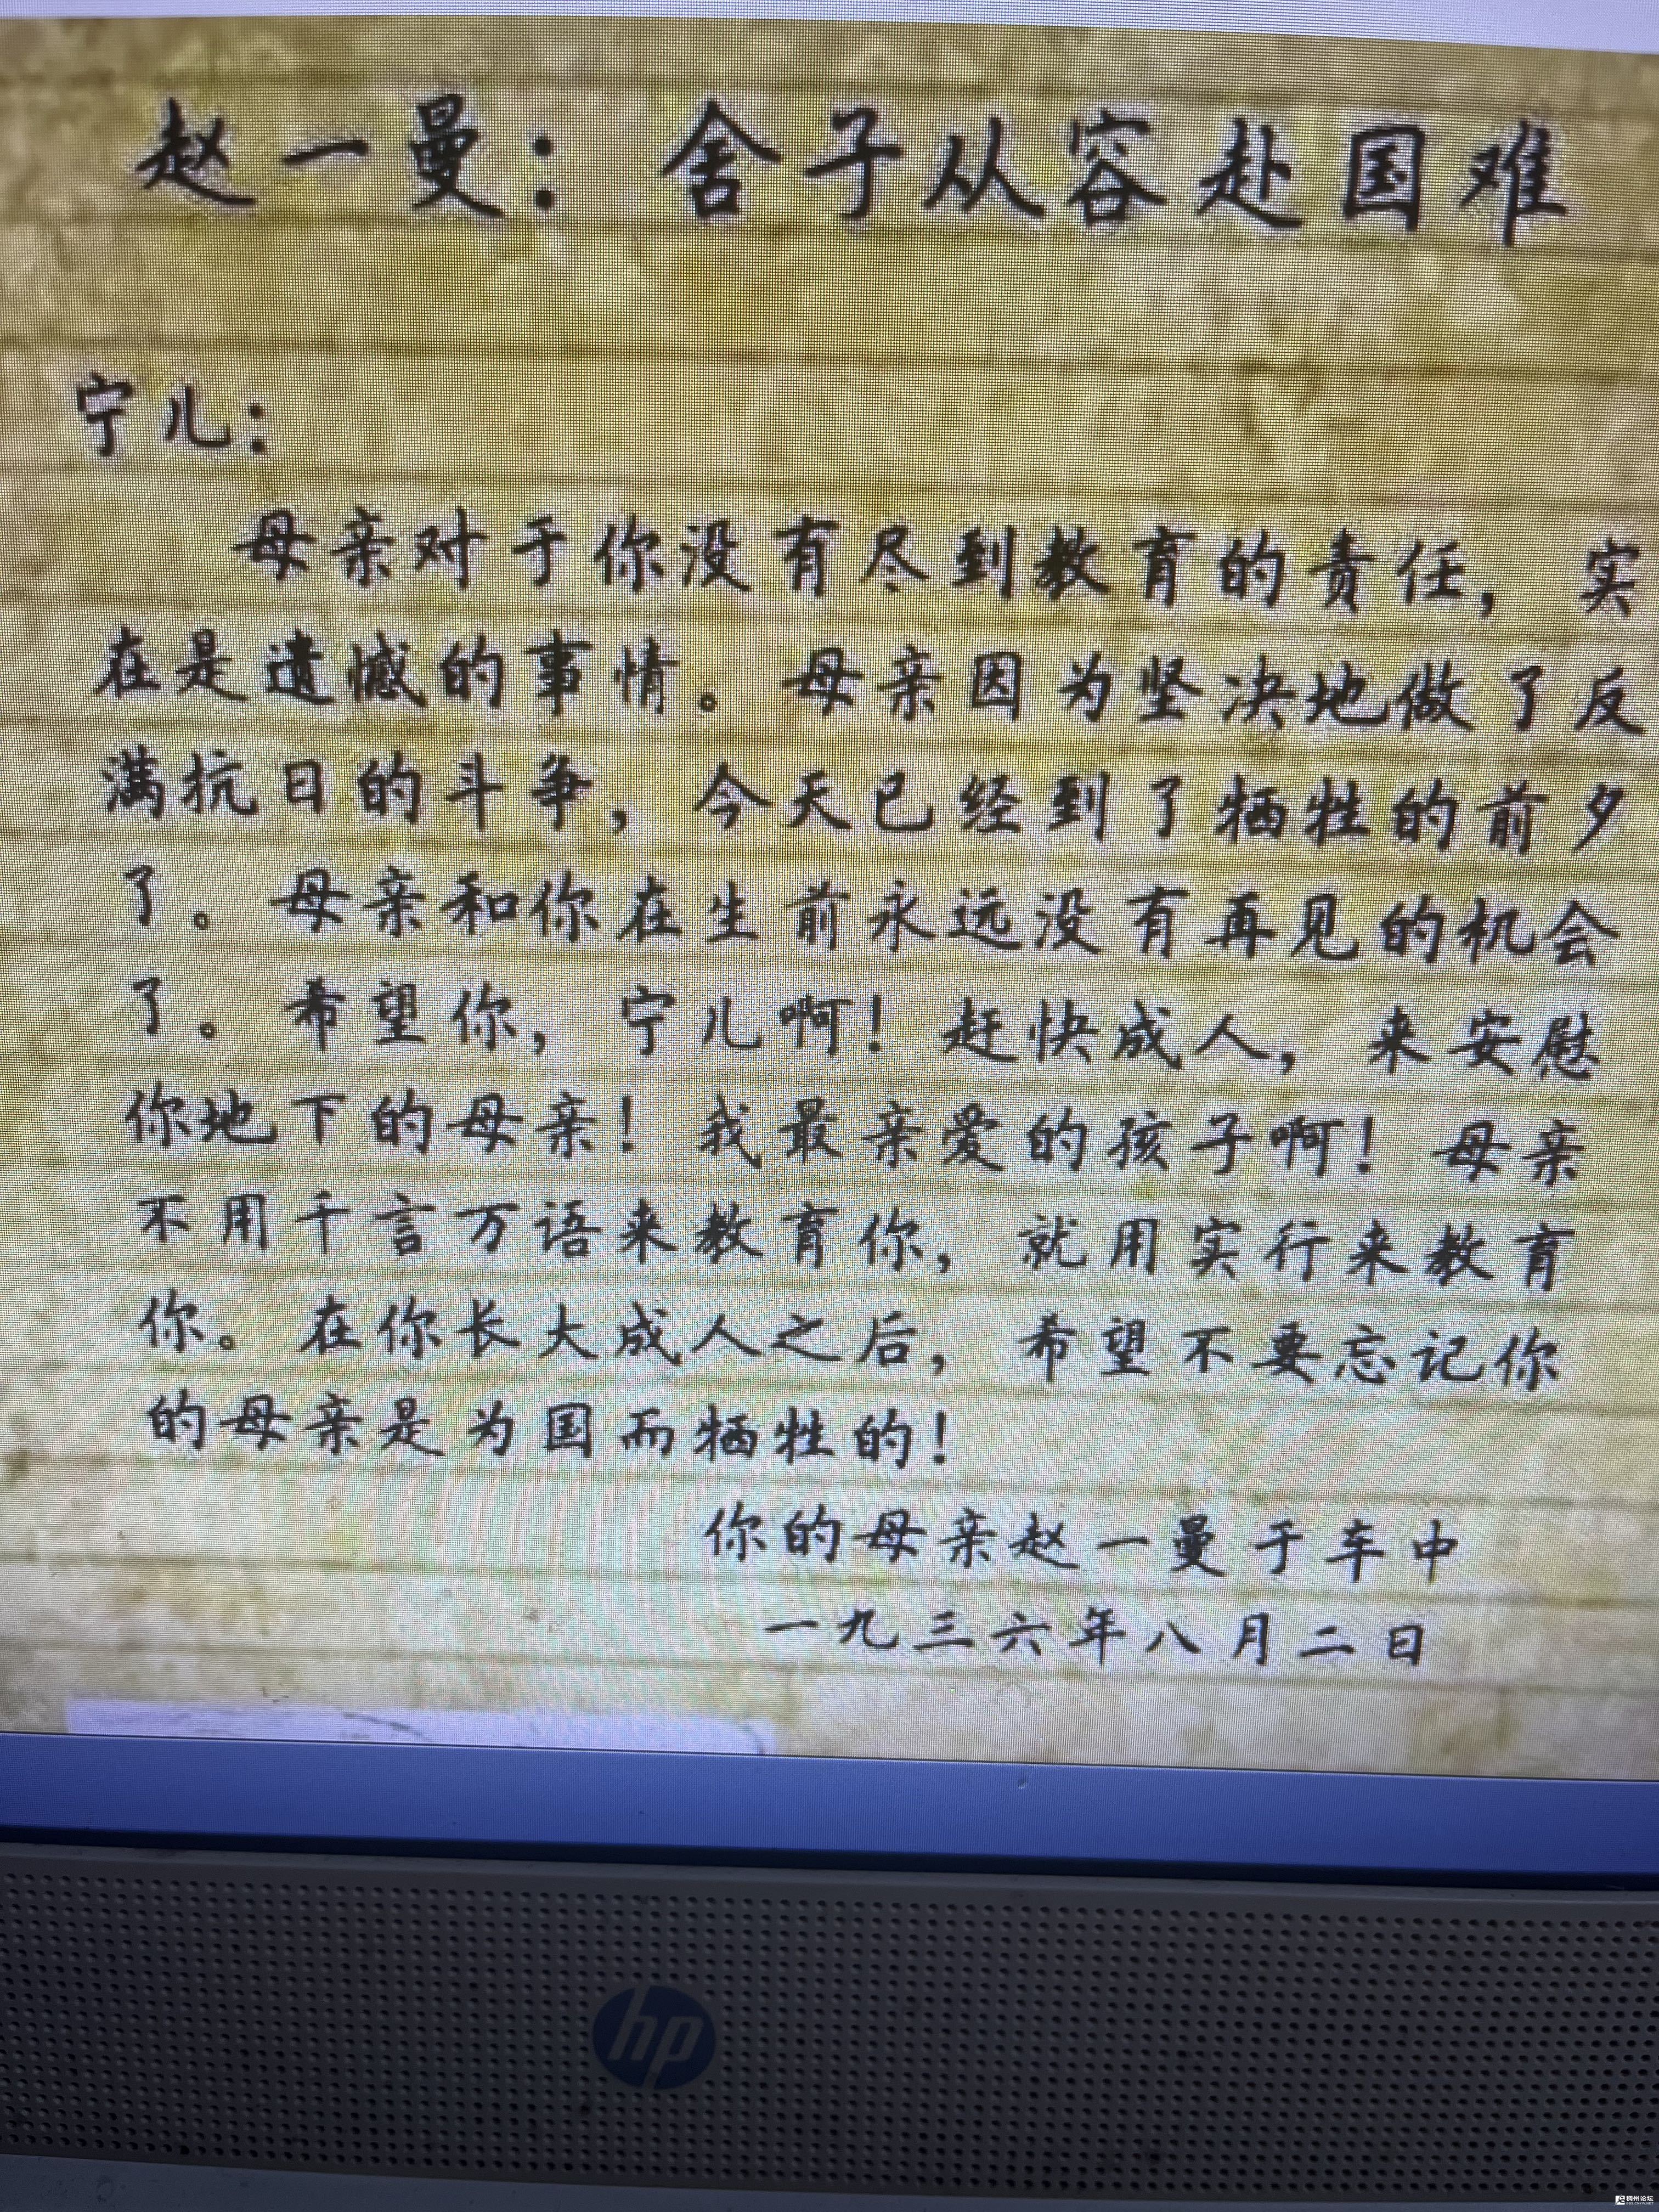 赵一曼：舍子从容赴国难
宁儿：
母亲对于你没有尽到教育的责任，实
在是遗憾的事情。母亲因为坚决地做了反
满抗日的斗争，今天已经到了牺牲的前夕
了。母亲和你在生前永远没有再见的机会
了。希望你，宁儿啊！赶快成人，来安慰
你地下的母亲！我最亲爱的孩子啊！母亲
不用千言万语来教育你，就用实行来教育
你。在你长大成人之后，希望不要忘记你
的母亲是为国而牺牲的！
你的母亲赵一曼于车中
一九三六年八月二日
hp
稠州论坛